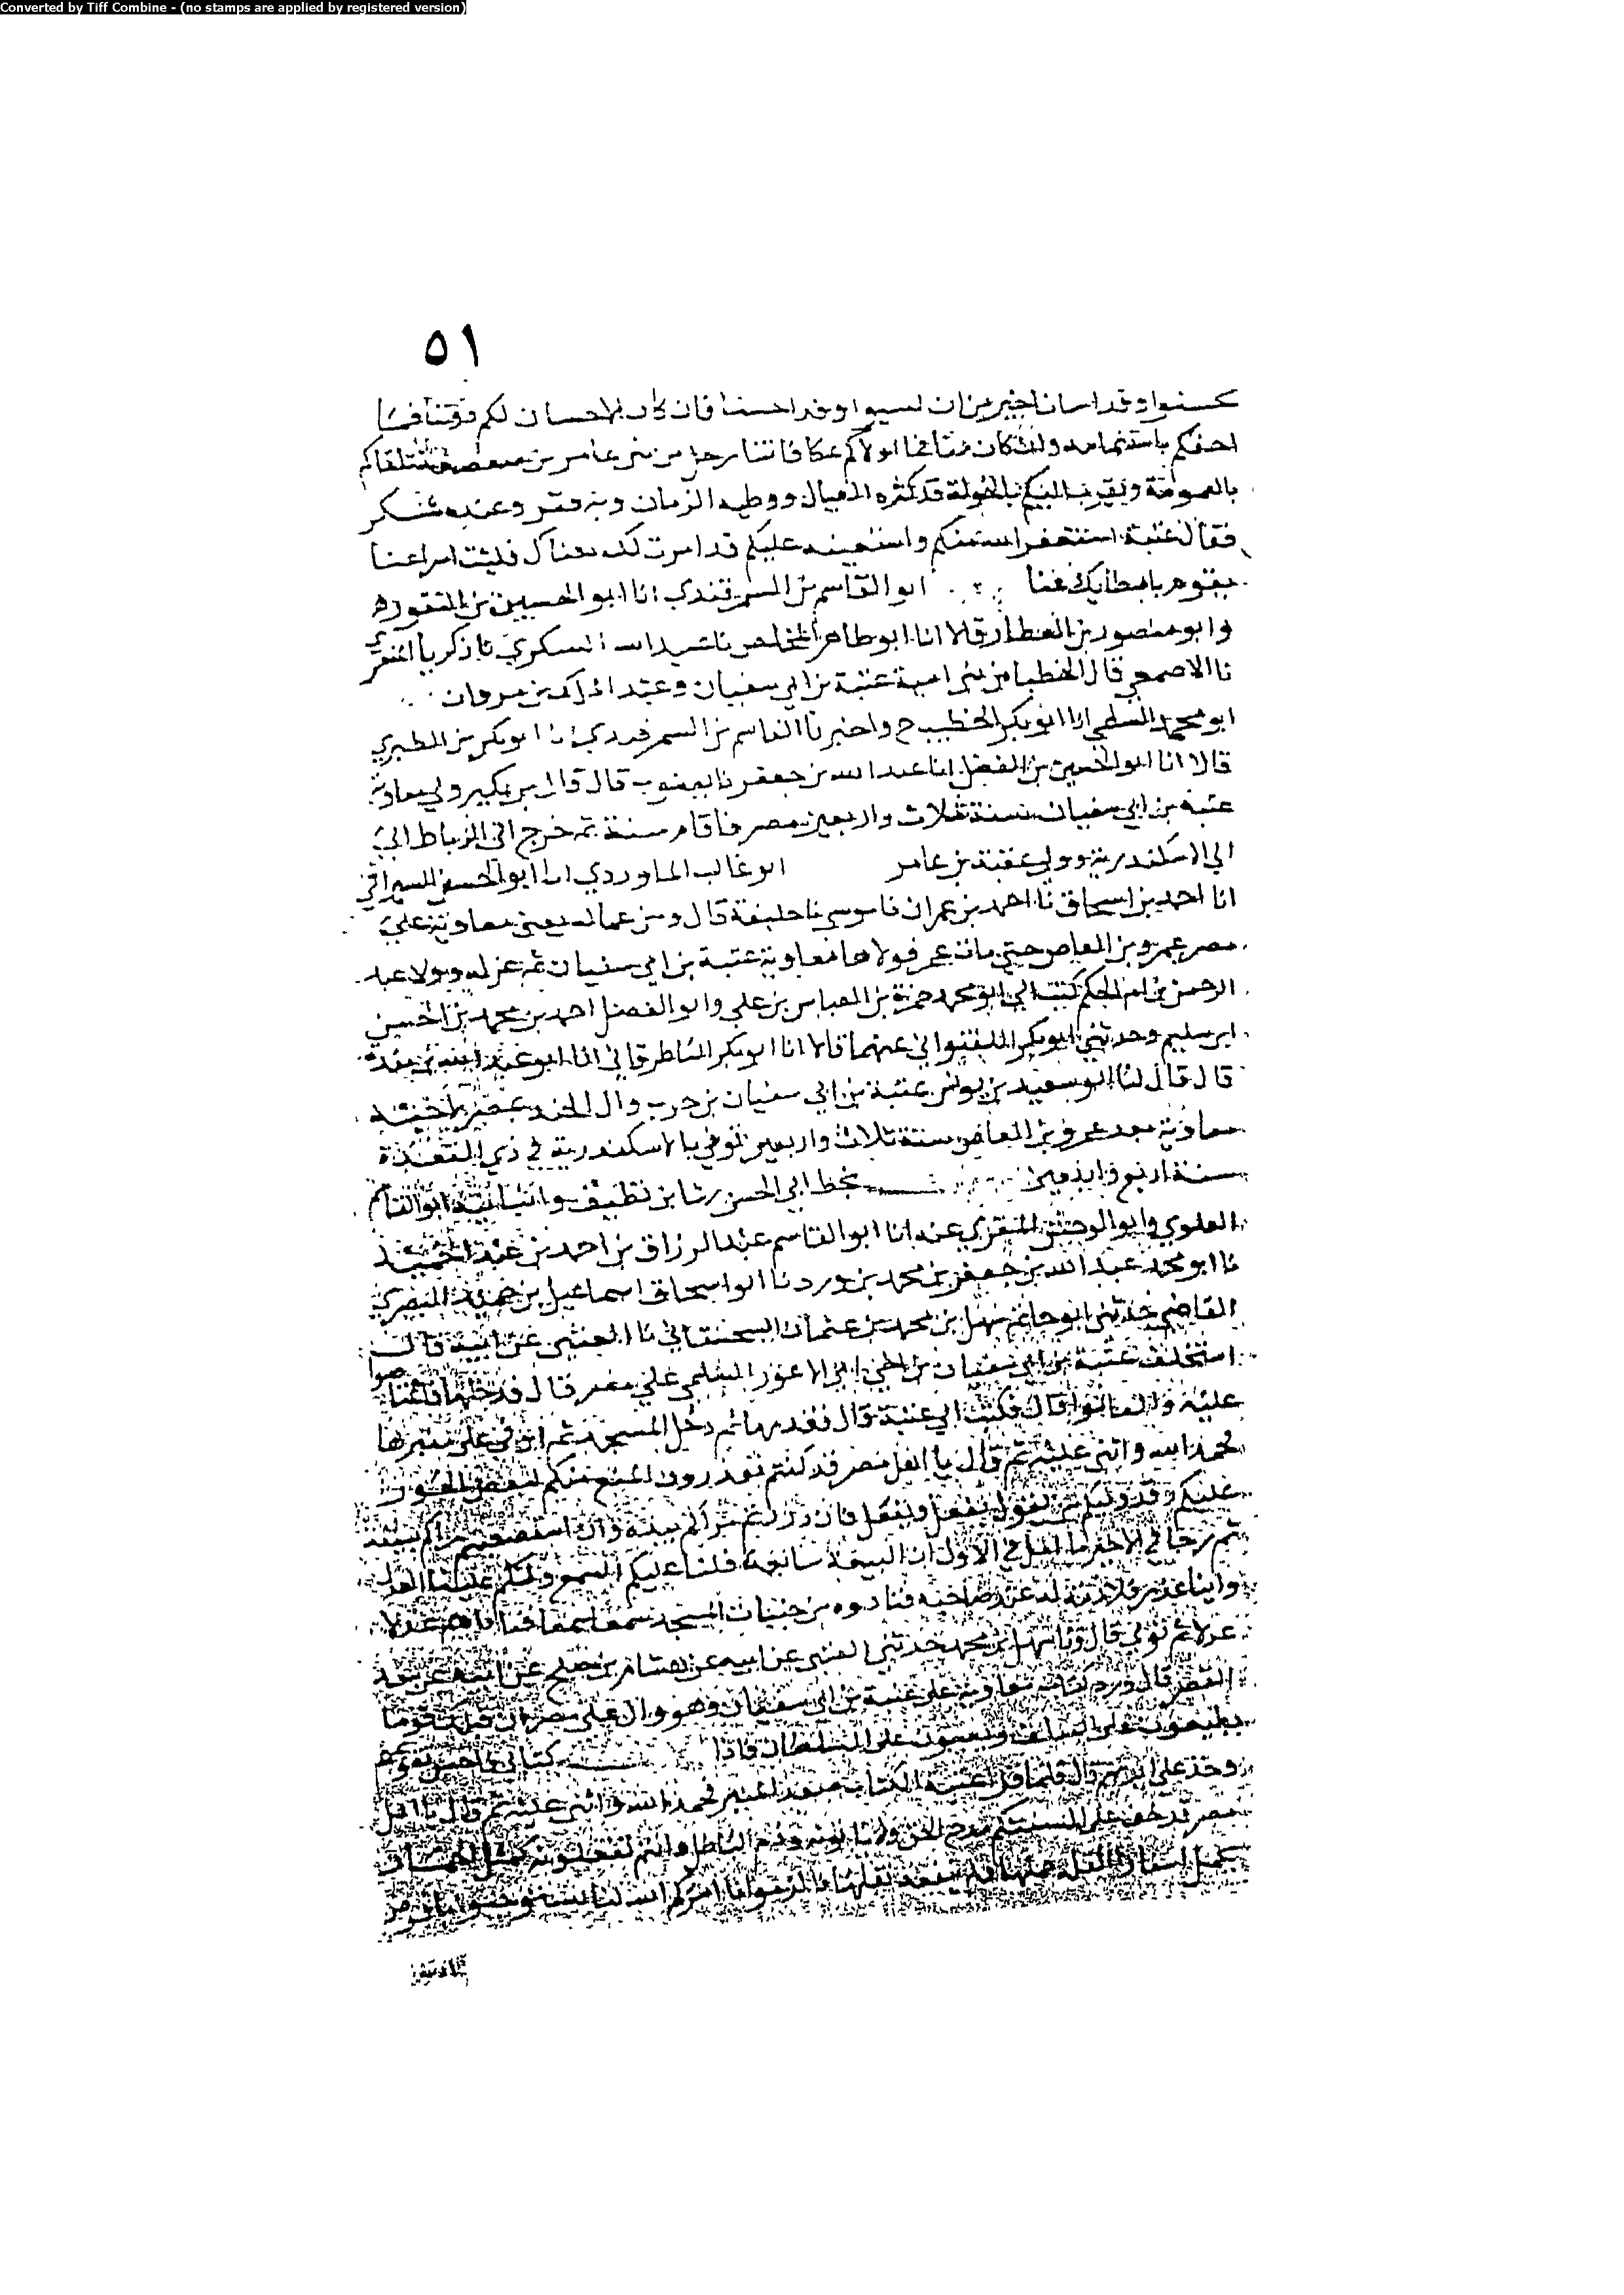 Converted by Tiff Combine - (no stamps are applied by registered version)
٥١
تحسنوا وقد اسانا خير من ان تسيوا وقد احسنا فان كان الاحسان لكم دوننا فما
احقكم باستتمامه وان كان منا فما اولاكم بمكافاتنا رجل من بني عامر بن صعصعة يتلقاكم
بالعمومة ويقرب اليكم بالخولة قد كثره العيال ووطيه الزمان وبه فقر وعنده شكر
فقال عتبة استغفر الله منكم واستعينه عليكم قد امرت لك بغناك فليت اسراعنا
يقوم بابطايك عنا ابو القاسم بن السمرقندي انا ابو الحسين بن النقور
وابو منصور بن العطار قالا انا ابو طاهر المخلص نا عبيد الله السكري نا زكريا المنقري
نا الاصمعي قال الخطبا من بني امية عتبة بن ابي سفيان وعبد الملك بن مروان
ابو محمد السلمي انا ابو بكر الخطيب ح واخبرنا ابو القاسم بن السمرقندي انا ابو بكر بن الطبري
قالا انا ابو الحسين بن الفضل انا عبد الله بن جعفر نا يعقوب قال قال ابن بكير ولي معاوية
عتبة بن ابي سفيان سنة ثلاث واربعين مصر فاقام سنة ثم خرج الى الرباط الى
الى الاسكندرية وولي عقبة بن عامر ابو غالب الماوردي انا ابو الحسن السيرافي
انا احمد بن اسحاق نا احمد بن عمران نا موسى نا خليفة قال ومن عماله يعني معاوية على
مصر عمرو بن العاص حتى مات عمرو فولاها معاوية عتبة بن ابي سفيان ثم عزله وولا عبد
الرحمن بن ام الحكم كتب الي ابو محمد حمزة بن العباس بن علي وابو الفضل احمد بن محمد بن الحسن
ابن سليم وحدثني ابو بكر اللفتواني عنهما قالا انا ابو بكر الباطرقاني انا ابو عبد الله بن منده
قال قال لنا ابو سعيد بن يونس عتبة بن ابي سفيان بن حرب وال الجند بمصر لاخيه
معاوية بعد عمرو بن العاص سنة ثلاث واربعين توفي بالاسكندرية في ذي القعدة
سنة اربع واربعين بخط ابي الحسن رشا بن نظيف وانبانيه ابو القاسم
العلوي وابو الوحش المقري عنه انا ابو القاسم عبد الرزاق بن احمد بن عبد الحميد
نا ابو محمد عبد الله بن جعفر بن محمد بن ورد نا ابو اسحاق اسماعيل بن حميد البصري
القاضي حدثني ابو حاتم سهل بن محمد بن عثمان السجستاني نا العتبي عن ابيه قال
استخلف عتبة بن ابي سفيان ابن اخي ابي الاعور السلمي على مصر قال فدخلها فاعتاصوا
عليه قال فكتب الى عتبة قال فقدمها ثم دخل المسجد ثم اوفى على منبرها
فحمد الله واثنى عليه ثم قال يا اهل مصر قد كنتم تعذرون المنع منكم لبعض الجور
عليكم وقد وليكم من يقول يفعل ويفعل فان
ثم رجا في الاخر ما امل في الاول ان البيعة فلنا عليكم السمع ولكم علينا العدل
واينا غدر فلا ذمة له عند صاحبه فنادوه من جنبات المسجد سمعا سمعا فناداهم عدلا
عدلا ثم نزل قال ونا سهل بن محمد حدثني العتبي عن ابيه عن هشام بن صالح عن ابيه عن سعد
القصر قال ورد كتاب معاوية على عتبة بن ابي سفيان وهو وال على مصر ان قبلك قوما
يطعنون على السلف ويعيبون على السلطان فاذا كتابي فاحسن تقويمهم
وخذ على ايديهم قال فلما قرا عتبة الكتاب صعد المنبر فحمد الله واثنى عليه ثم قال يا اهل
مصر قد خف على السنتكم مدح الحق ولا تاتونه وذم الباطل وانتم تفعلونه كمثل الحمار
يحمل اسفارا